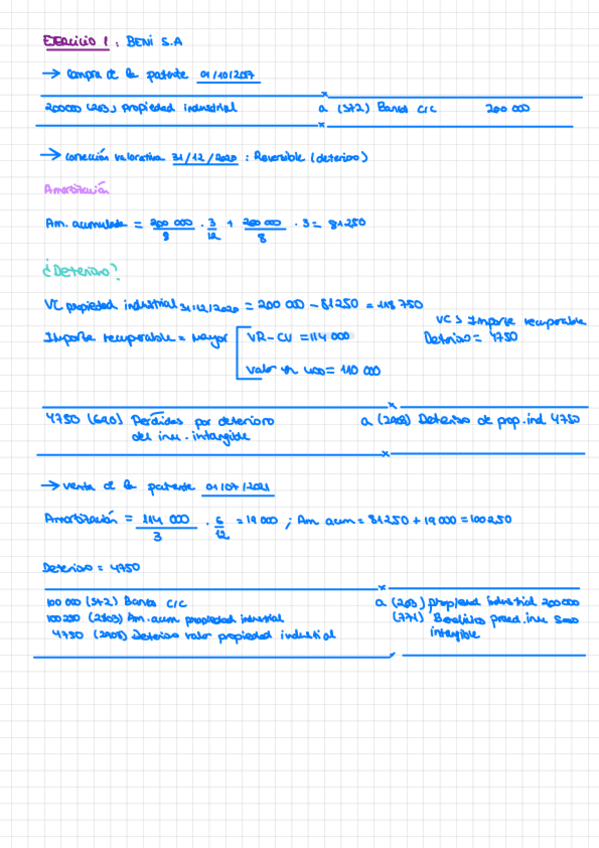 EJERCICIO 1 : BENI S.A
→ Compra de la patente 01/10/2017
200000 (203) propiedad industrial a (572) Bancos c/c 200 000
→ Corrección valorativa 31/12/2020 : Reversible (deterioro)
Amortización
Am. acumulada = 200 000 / 8 · 3/12 + 200 000 / 8 · 3 = 81250
¿Deterioro?
VC propiedad industrial 31/12/2020 = 200 000 - 81250 = 118 750
VC > Importe recuperable
Importe recuperable = mayor VR - CV = 114 000
Deterioro = 4750
Valor en uso = 110 000
4750 (690) Pérdidas por deterioro a (2903) Deterioro de prop. ind 4750
del inm. intangible
→ venta de la patente 01/07/2021
Amortización = 114 000 / 3 · 6/12 = 19 000 ; Am acum = 81250 + 19 000 = 100250
Deterioro = 4750
100 000 (572) Bancos c/c a (203) propiedad industrial 200000
100250 (2803) Am. acum propiedad industrial (771) Beneficios proced. inm 5000
4750 (2903) Deterioro valor propiedad industrial intangible